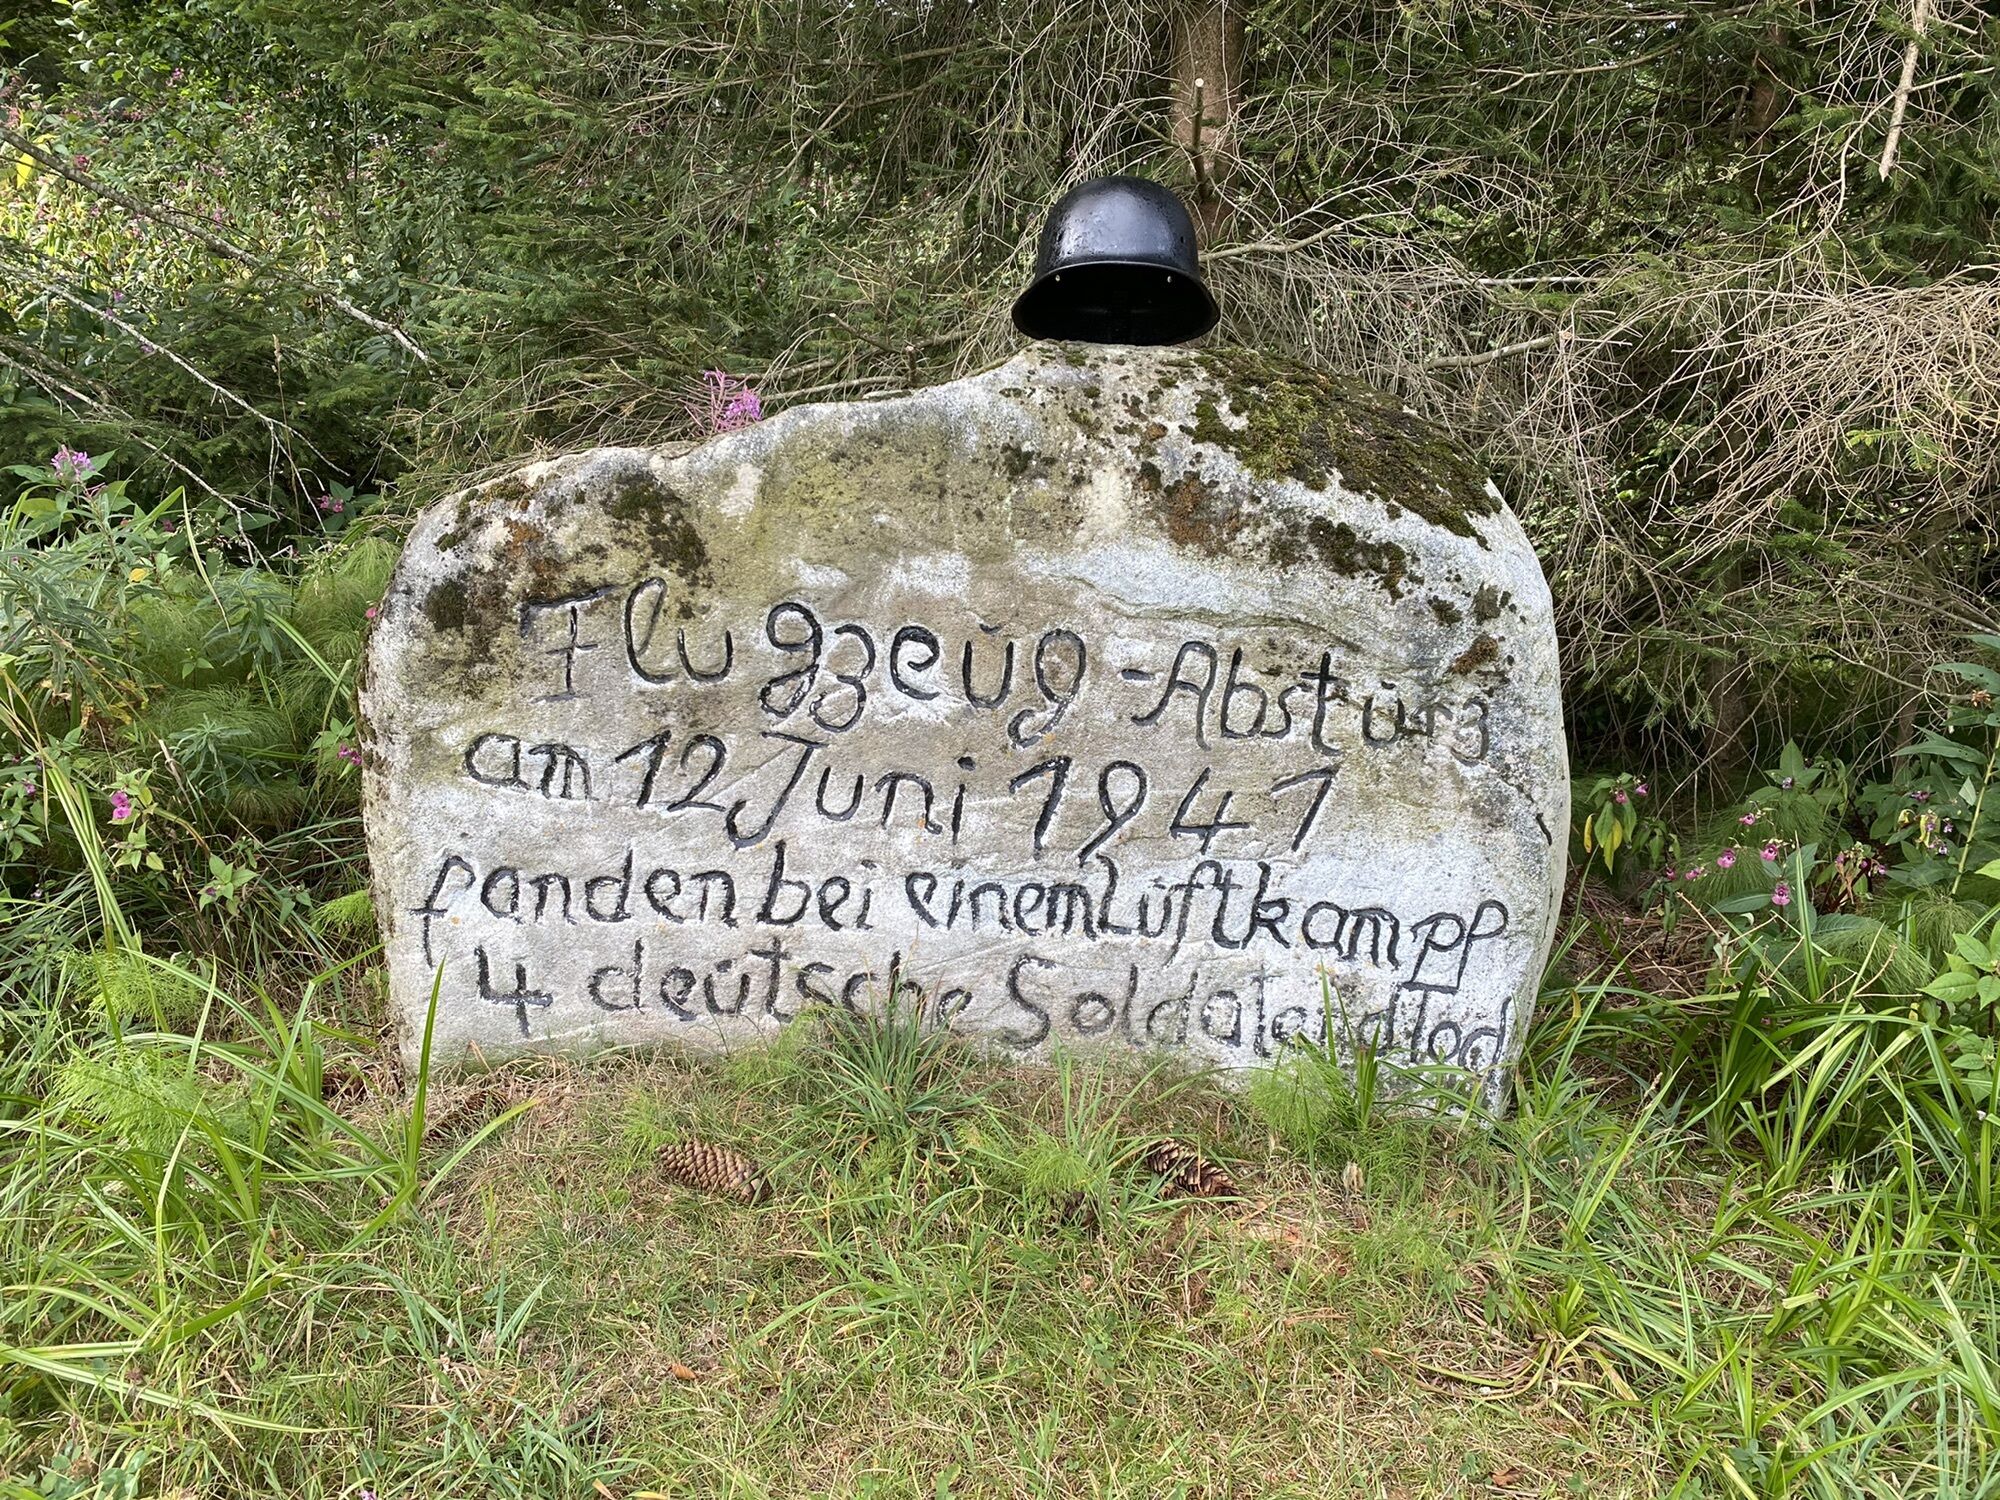 Flugzeug-Absturz
am 12 Juni 1941
fanden bei einem Luftkampf
4 deutsche Soldaten d Tod